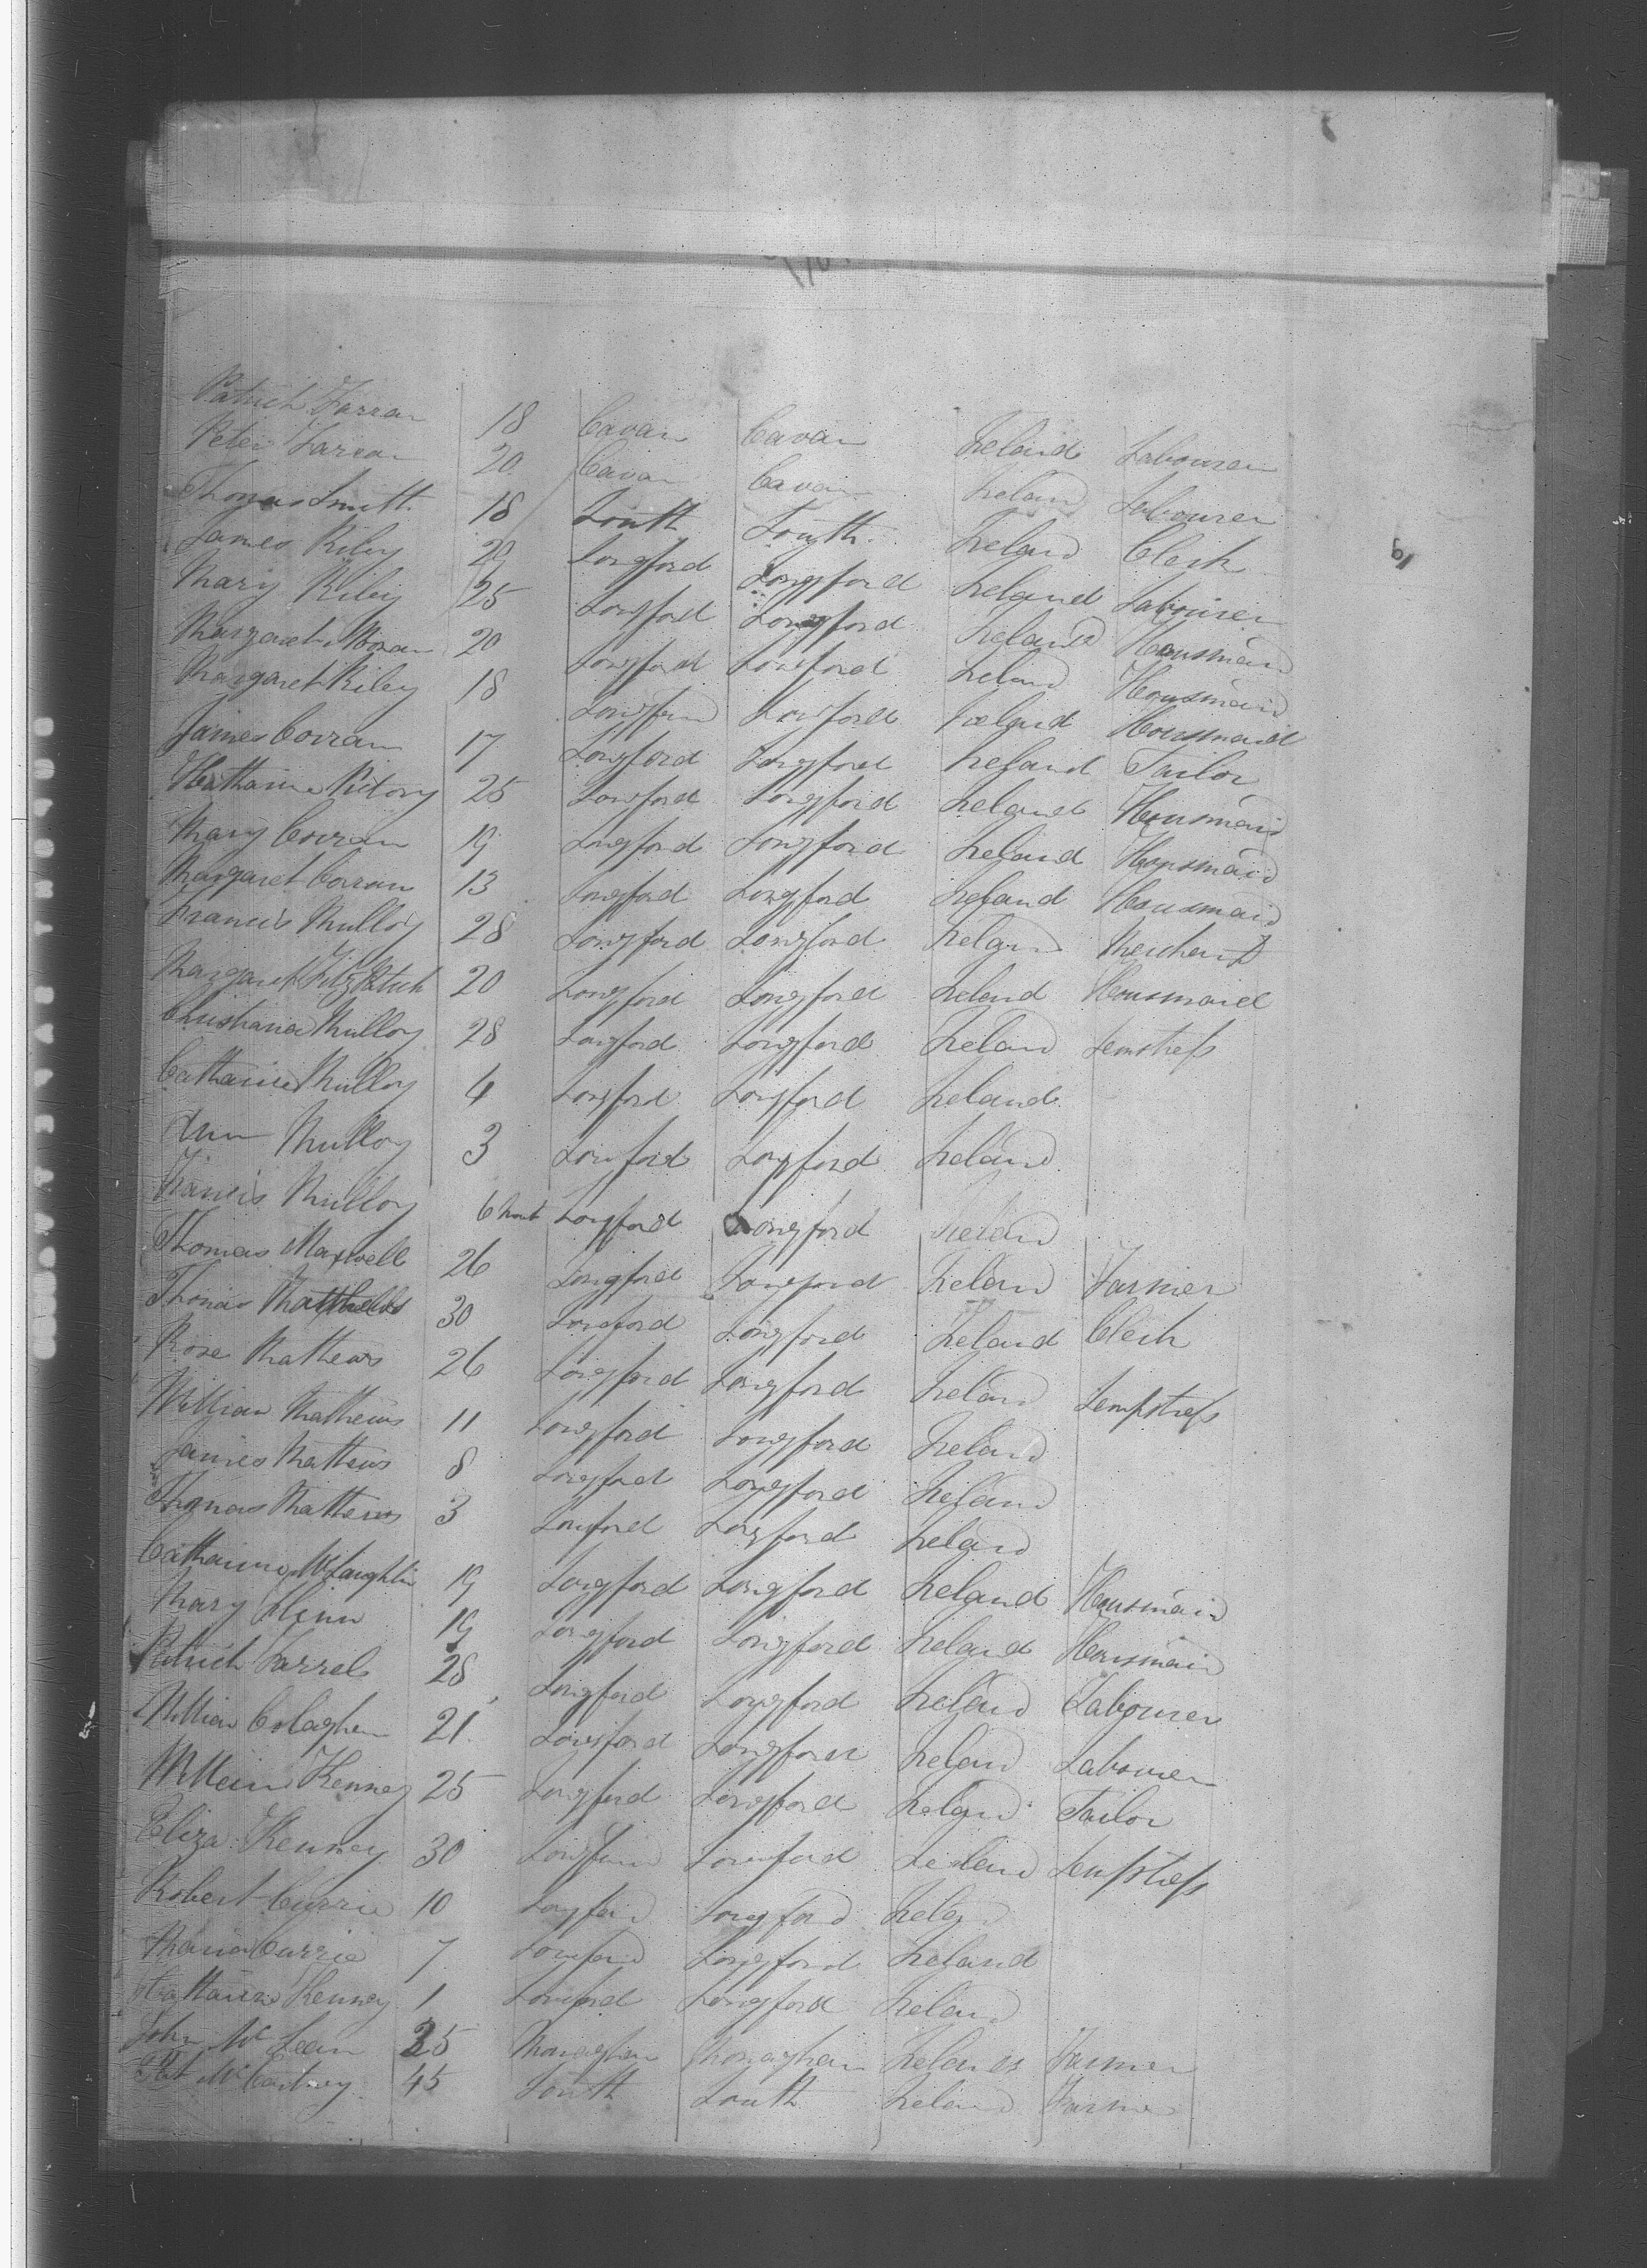 Patrick Farran 18 Cavan Cavan Ireland Labourer
Peter Farran 20 Cavan Cavan Ireland Labourer
Thomas Smith 18 Louth Louth Ireland Clerk
James Riley 20 Longford Longford Ireland Labourer
Mary Riley 25 Longford Longford Ireland Housmaid
Margaret Moran 20 Longford Longford Ireland Housmaid
Margaret Riley 18 Longford Longford Ireland Housmaid
James Corran 17 Longford Longford Ireland Tailor
Catharine 25 Longford Longford Ireland Housmaid
Mary Corran 19 Longford Longford Ireland Housmaid
Margaret Corran 13 Longford Longford Ireland Housmaid
Francis Mulloy 28 Longford Longford Ireland Merchant
Margaret Fitz Patrick 20 Longford Longford Ireland Housmaid
Christiana Mulloy 28 Longford Longford Ireland Semstress
Catharine Mulloy 4 Longford Longford Ireland
Ann Mulloy 3 Longford Longford Ireland
Francis Mulloy 6 Longford Longford Ireland
Thomas Maxwell 26 Longford Longford Ireland Farmer
Thomas 30 Longford Longford Ireland Clerk
Rose Mathews 26 Longford Longford Ireland Sempstress
William Mathews 11 Longford Longford Ireland
James Mathews 8 Longford Longford Ireland
Thomas Mathews 3 Longford Longford Ireland
Catharine McLaughlin 19 Longford Longford Ireland Housmaid
Mary Glenn 19 Longford Longford Ireland Housmaid
Patrick Farrel 28 Longford Longford Ireland Labourer
William Colaghen 21 Longford Longford Ireland Labourer
William Kenney 25 Longford Longford Ireland Tailor
Eliza Kenney 30 Longford Longford Ireland Sempstress
Robert Currie 10 Longford Longford Ireland
Maria Currie 7 Longford Longford Ireland
Catharine Kenney 1 Longford Longford Ireland
John Mc Lean 35 Monaghan Monaghan Ireland Farmer
Pat McCartney 45 Louth Louth Ireland Farmer